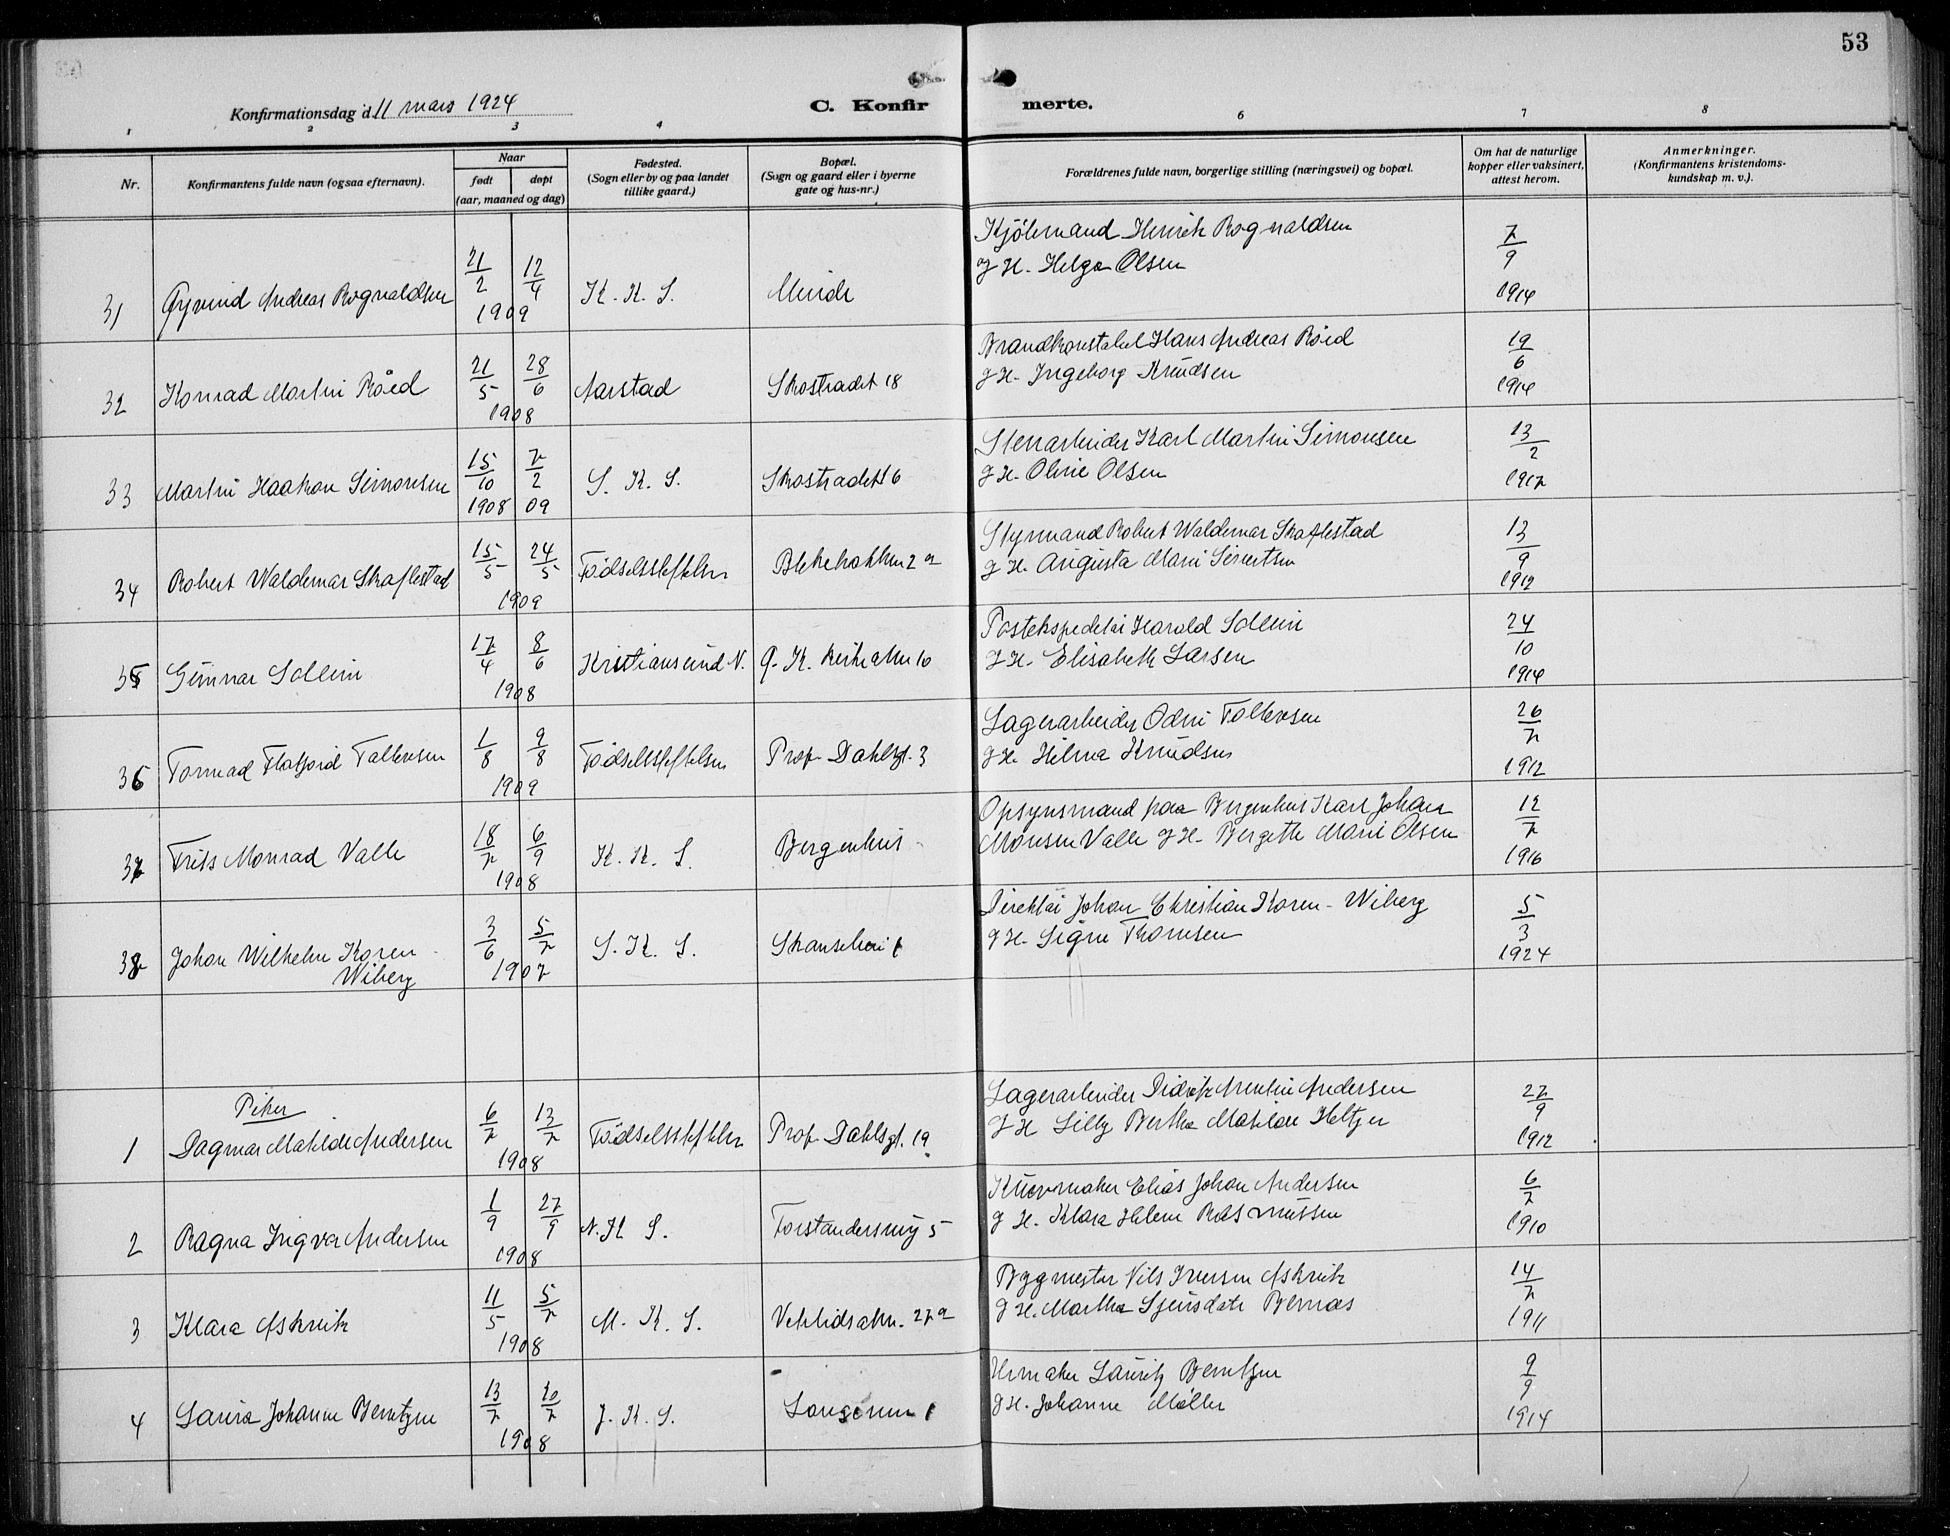 53
Konfirmationsdag d. 11 mars 1924
C. Konfirmerte.
1 2 3 4 5 6 7 8
Nr.
Konfirmantens fulde navn (ogsaa efternavn).
Naar
født
døpt
(aar, maaned og dag)
Fødested.
(Sogn eller by og paa landet
tillike gaard.)
Bopæl.
(Sogn og gaard eller i byerne
gate og hus-nr.)
Forældrenes fulde navn, borgerlige stilling (næringsvei) og bopæl.
Om hat de naturlige
kopper eller vaksinert,
attest herom.
Anmerkninger.
(Konfirmantens kristendoms-
kundskap m. v.).
31 Øyvind Andreas Rognaldsen 21/2 12/4 1909 K. K. S. Minde
Kjølemand Henrik Rognaldsen
g H. Helga Olsen
7/9 1914
32 Konrad Martin Røed 21/5 28/6 1908 Aarstad Skostrædet 18
Brandkonstabel Hans Andreas Røed
g H. Ingeborg Knudsen
19/6 1914
33 Martin Haakon Simonsen 15/10 1908 7/2 09 S. K. S. Skostrædet 16
Stenarbeider Karl Martin Simonsen
g H. Oline Olsen
13/2 1917
34 Robert Waldemar Skaflestad 15/5 24/5 1909 Fødselsstiftelsen Blekebakken 2 a
Styrmand Robert Waldemar Skaflestad
g H. Augusta Marie Sivertsen
13/9 1912
35 Gunnar Sollein 17/4 8/6 1908 Kristiansund N. 10
Postekspeditør Harald Sollein
g H. Elisabeth Larsen
24/10 1914
36 Tormod Flatjord Tallevsen 1/8 9/8 1909 Fødselsstiftelsen Prof. Dahlsgt. 3
Lagerarbeider Odin Tallevsen
g H. Hilma Knudsen
26/7 1912
37 Frits Monrad Valle 18/7 6/9 1908 K. K. S. Bergenhus
Opsynsmand paa Bergenhus Karl Johan
Monsen Valle g H. Bergitte Marie Olsen
12/7 1916
38 Johan Wilhelm Koren
Wiberg
3/6 5/7 1907 S. K. S. Skansehei 1
Direktør Johan Christian Koren-Wiberg
g H. Signe Thomsen
5/3 1924
Piker
1 Dagmar Matilde Andersen 6/7 13/7 1908 Fødselsstiftelsen Prof. Dahlsgt. 19
Lagerarbeider Didrik Andersen
g H Lilly Bertha Matilde Heltzer
27/9 1912
2 Ragna Ingva Andersen 1/9 27/9 1908 N. K S. Forstandersmug 5
Kurvmaker Elias Johan Andersen
g H. Klara Helene Rasmussen
6/7 1910
3 Klara Askvik 11/5 5/7 1908 M. K. S. 27 a
Bygmester Nils Iversen Askvik
g H. Martha Sjursdatr Bernas
14/7 1911
4 Laura Johanne Berntzen 13/7 20/7 1908 J. K. S.
Urmaker Lauritz Berntzen
g H. Johanne Møller
9/9 1914